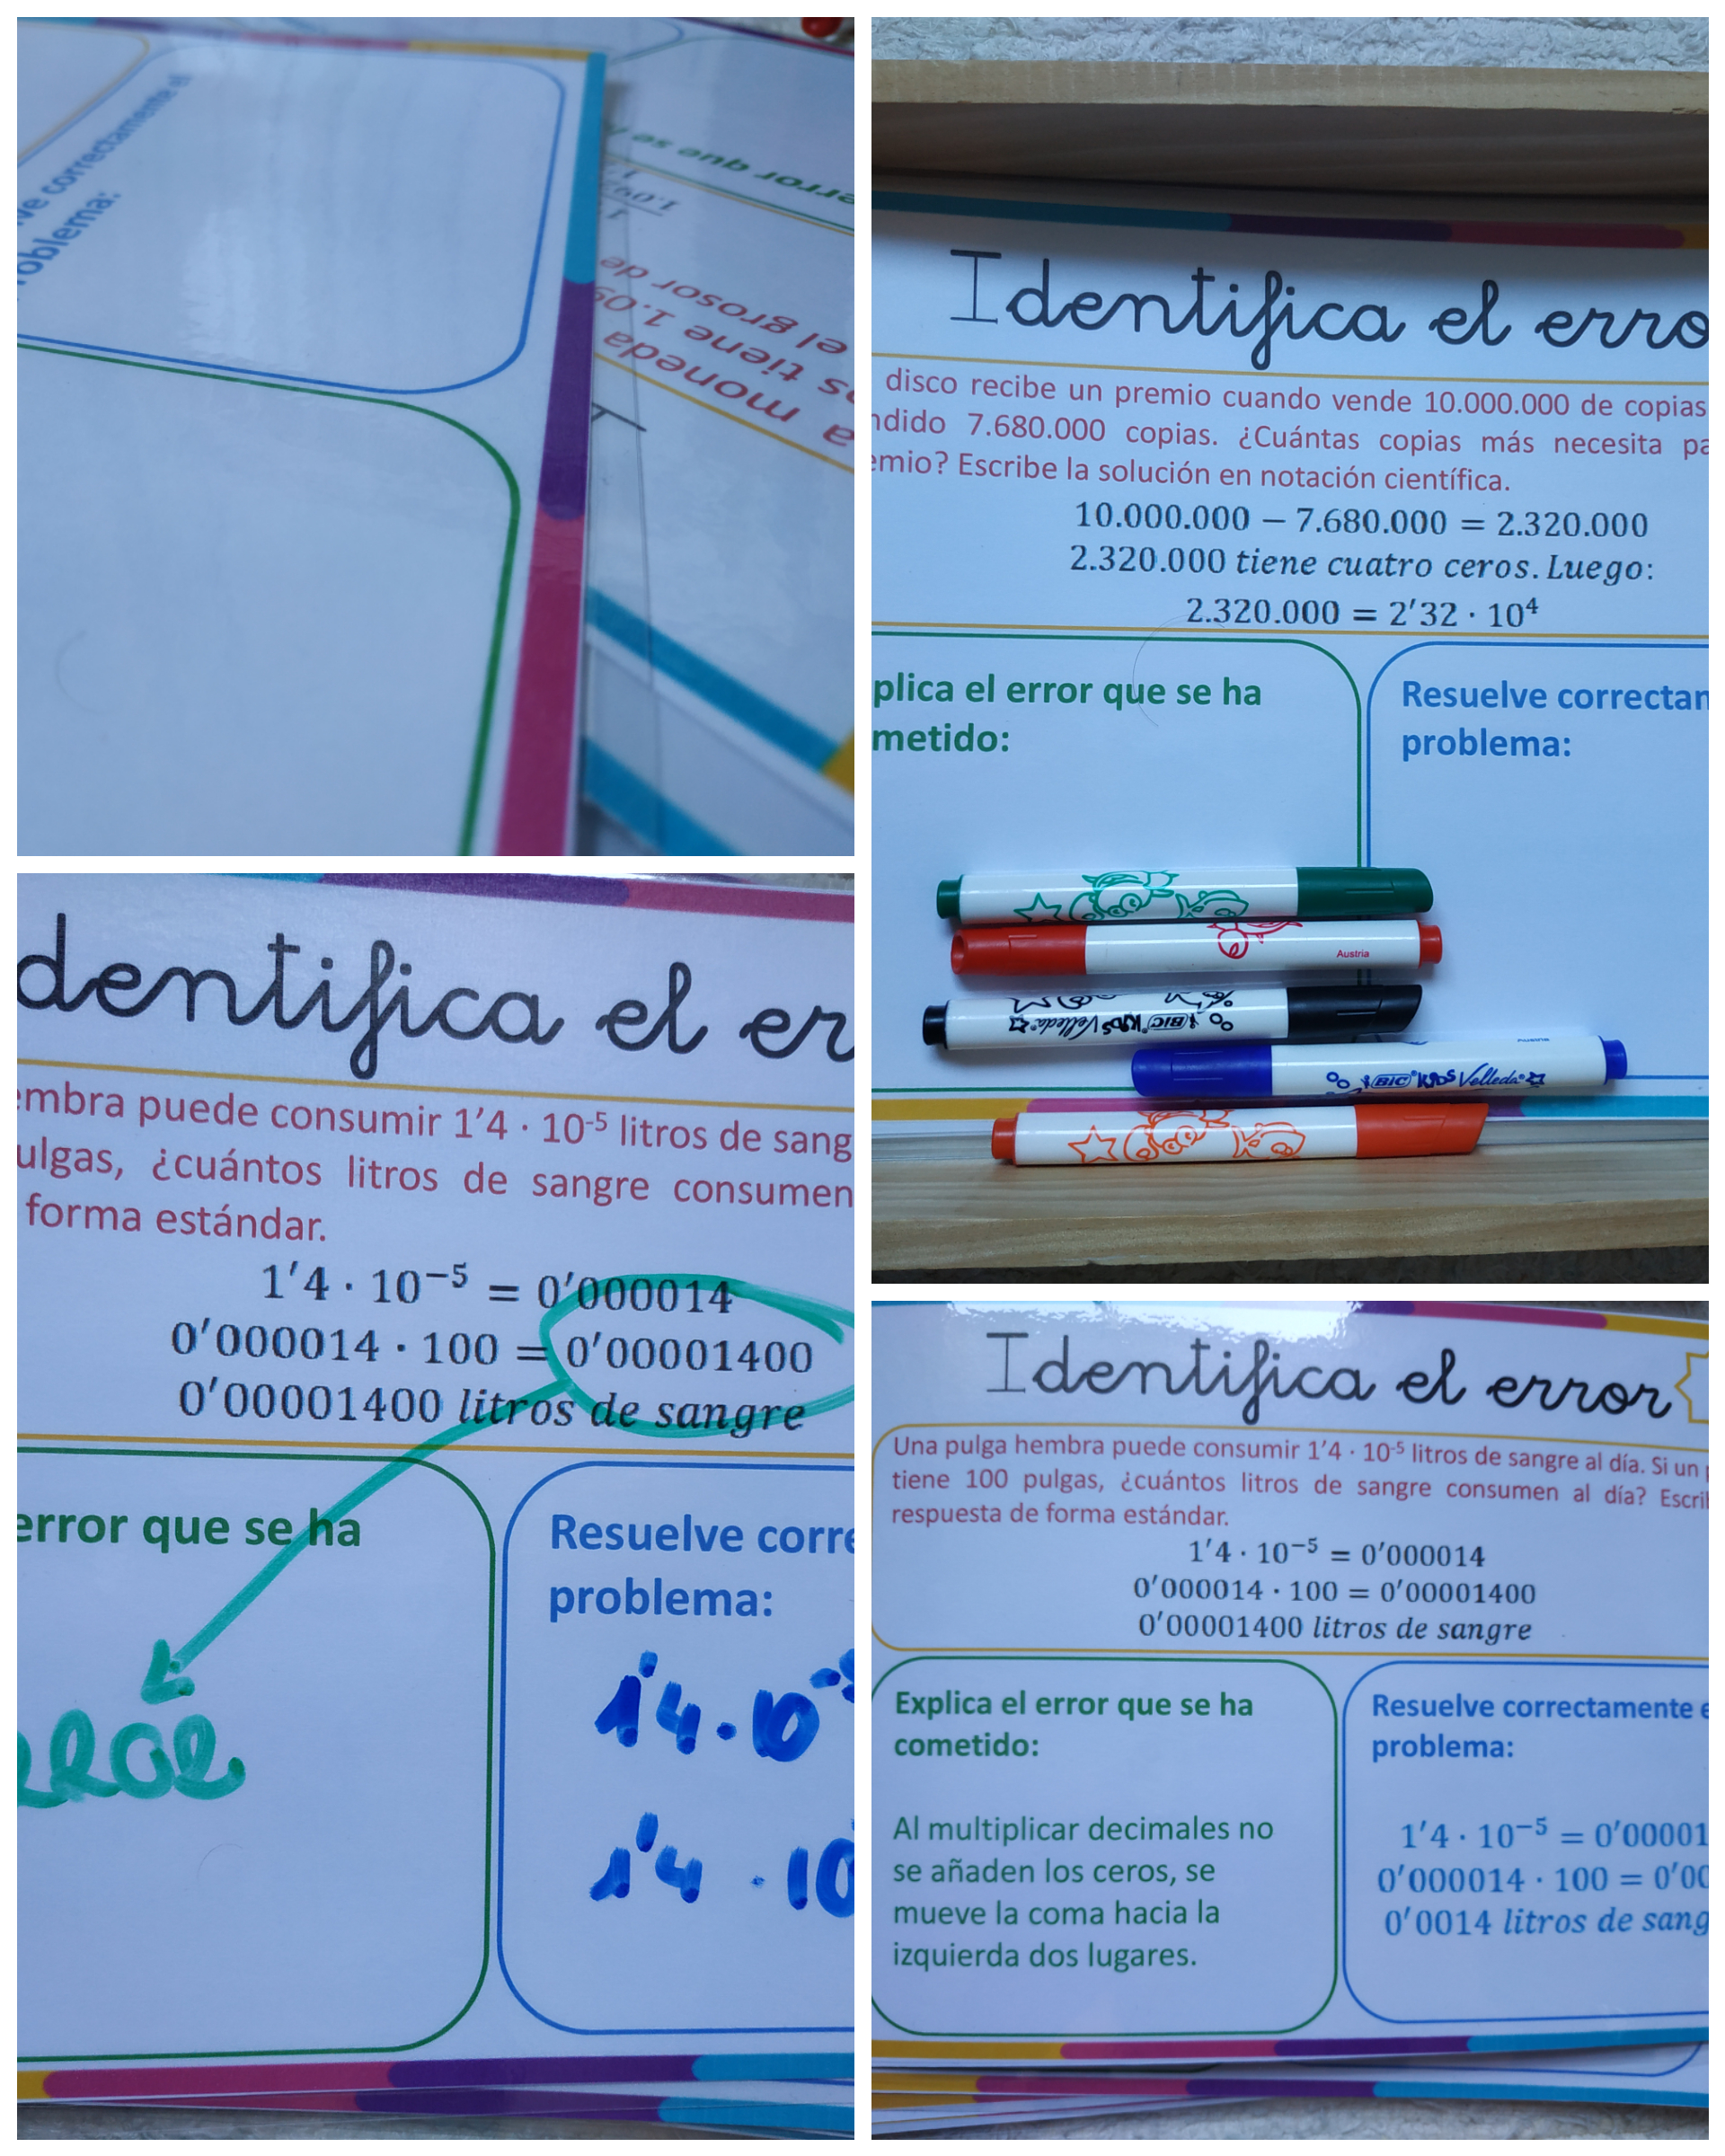 correctamente el
problema:
error que se h
1.09
moneda
s tiene 1.09
el grosor de
Identifica el erro
disco recibe un premio cuando vende 10.000.000 de copias
ndido 7.680.000 copias. ¿Cuántas copias más necesita pa
emio? Escribe la solución en notación científica.
10.000.000 − 7.680.000 = 2.320.000
2.320.000 tiene cuatro ceros. Luego:
2.320.000 = 2′32 · 10⁴
plica el error que se ha
metido:
Resuelve correctan
problema:
Austria
BIC KIDS Velleda
Austria
BIC KIDS Velleda
dentifica el er
embra puede consumir 1’4 · 10⁻⁵ litros de sang
ulgas, ¿cuántos litros de sangre consumen
forma estándar.
1′4 · 10⁻⁵ = 0′000014
0′000014 · 100 = 0′00001400
0′00001400 litros de sangre
error que se ha
Resuelve corre
problema:
1'4 · 10⁻⁵
1'4 · 10
Identifica el error
Una pulga hembra puede consumir 1’4 · 10⁻⁵ litros de sangre al día. Si un p
tiene 100 pulgas, ¿cuántos litros de sangre consumen al día? Escri
respuesta de forma estándar.
1′4 · 10⁻⁵ = 0′000014
0′000014 · 100 = 0′00001400
0′00001400 litros de sangre
Explica el error que se ha
cometido:
Al multiplicar decimales no
se añaden los ceros, se
mueve la coma hacia la
izquierda dos lugares.
Resuelve correctamente e
problema:
1′4 · 10⁻⁵ = 0′00001
0′000014 · 100 = 0′00
0′0014 litros de sang